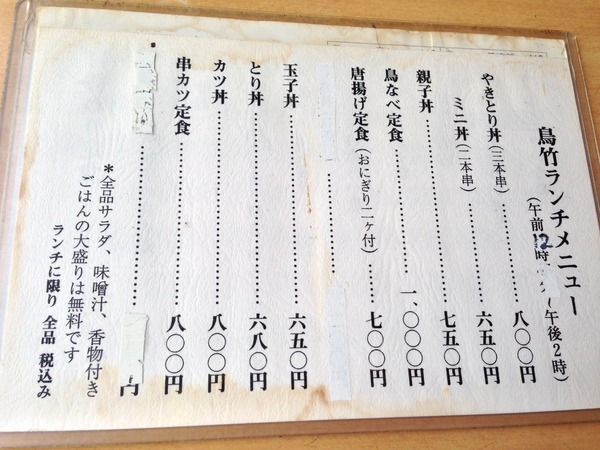 鳥竹ランチメニュー
(午前12時〜午後2時)
やきとり丼(三本串)…………八〇〇円
ミニ丼(二本串)…………六五〇円
親子丼…………七五〇円
鳥なべ定食…………一、〇〇〇円
唐揚げ定食(おにぎり二ヶ付)…………七〇〇円
玉子丼…………六五〇円
とり丼…………六八〇円
カツ丼…………八〇〇円
串カツ定食…………八〇〇円
円
*全品サラダ、味噌汁、香物付き
ごはんの大盛りは無料です
ランチに限り 全品 税込み